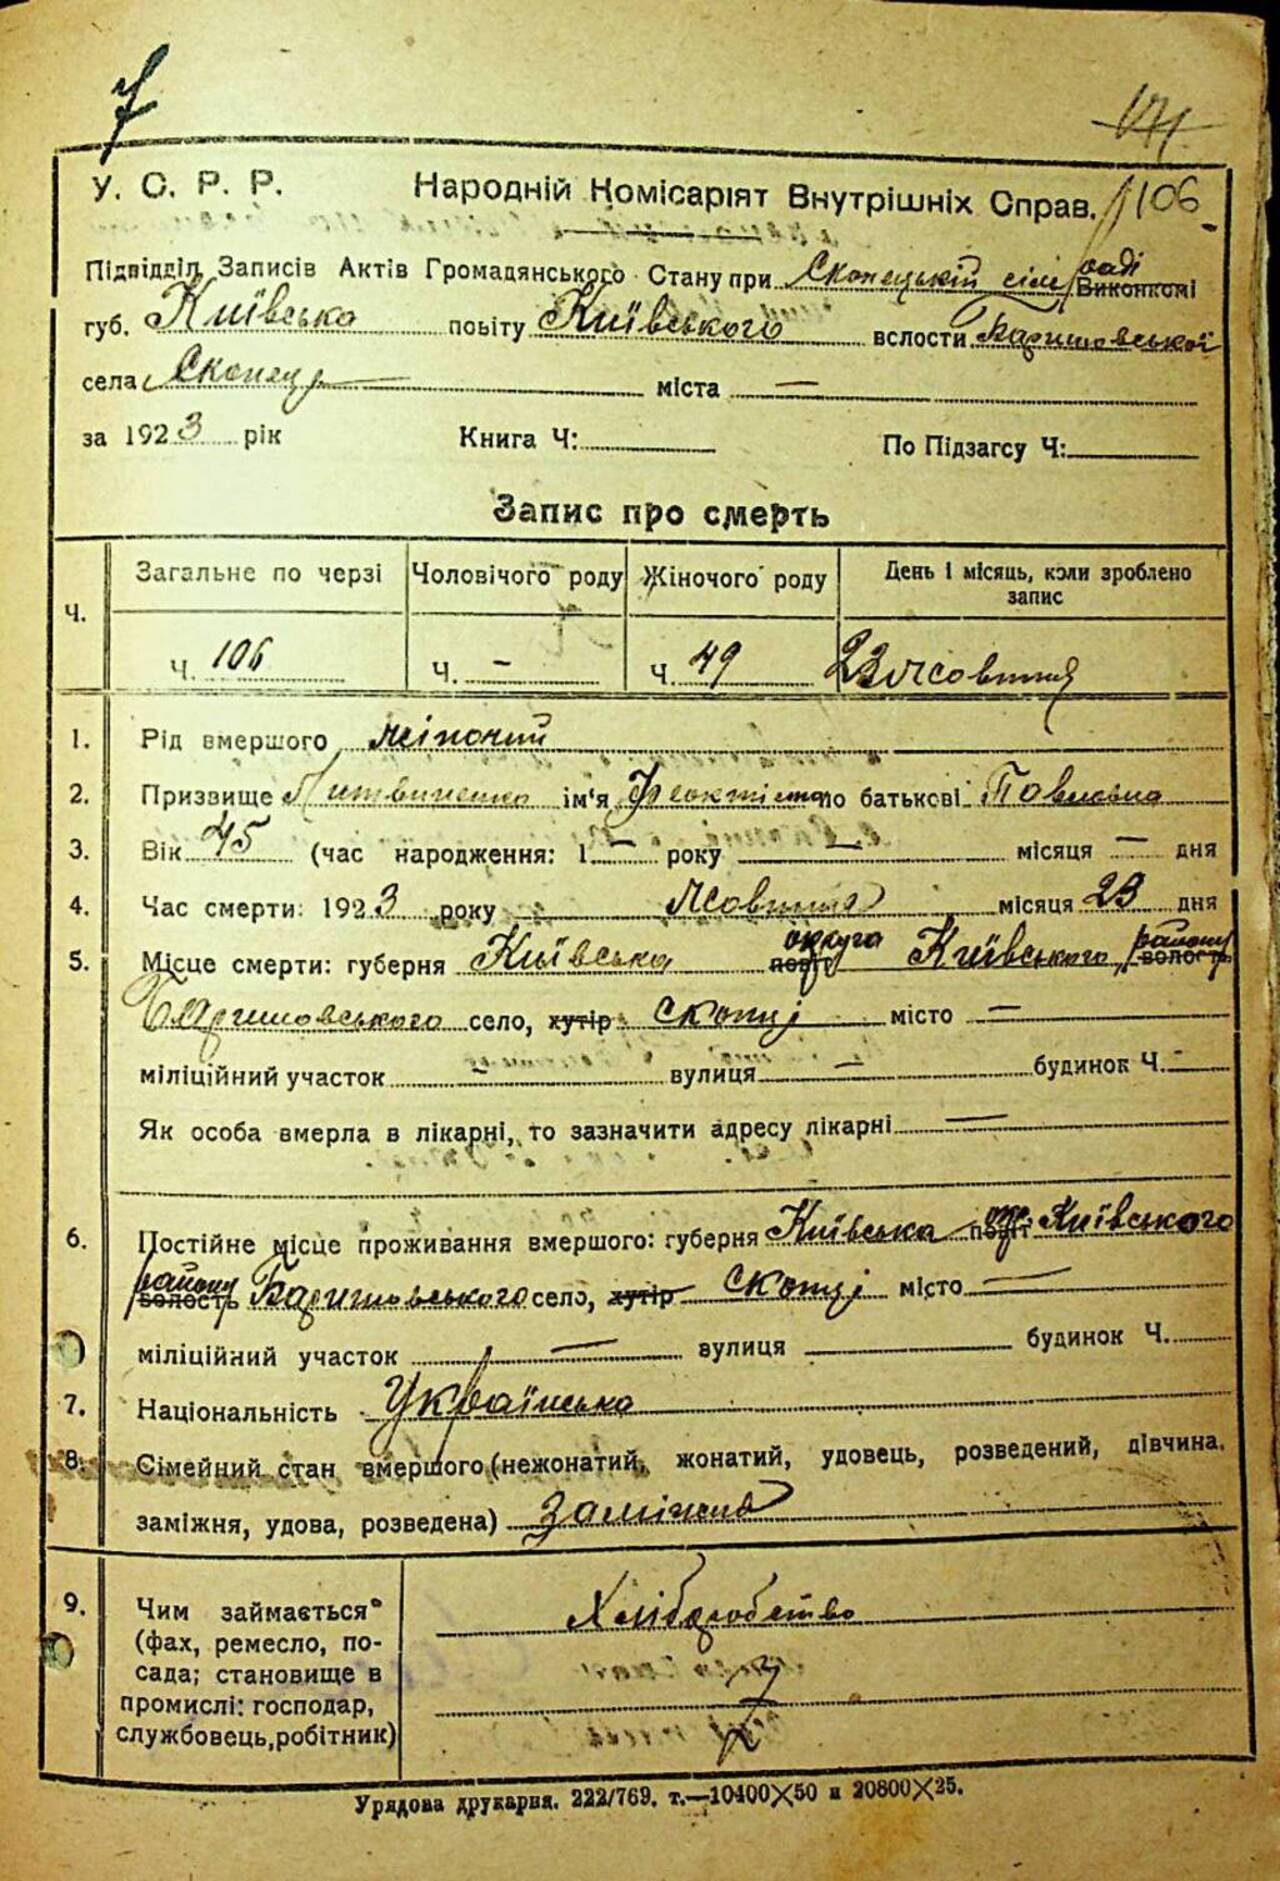 7
171
У. С. Р. Р. Народній Комісаріят Внутрішніх Справ. 106
Підвідділ Записів Актів Громадянського Стану при Скопецькій сіль раді Виконкомі
губ. Київська повіту Київського волости Баришовської
села Скопці міста —
за 1923 рік Книга Ч: По Підзагсу Ч:
Запис про смерть
Ч. Загальне по черзі Чоловічого роду Жіночого роду День і місяць, коли зроблено запис
Ч. 106 Ч. – Ч. 49 23 Жовтня
1. Рід вмершого жіночий
2. Призвище Литвиненко ім'я Феоктіста по батькові Павловна
3. Вік 45 (час народження: 1 — року — місяця — дня
4. Час смерти: 1923 року Жовтня місяця 23 дня
5. Місце смерти: губерня Київська округа повіт Київського району волость
Баришовського село, хутір Скопці місто —
міліційний участок – вулиця – будинок Ч. –
Як особа вмерла в лікарні, то зазначити адресу лікарні —
6. Постійне місце проживання вмершого: губерня Київська окр. повіт Київського
району волость Баришовського село, хутір Скопці місто —
міліційний участок — вулиця будинок Ч.
7. Національність Українська
8. Сімейний стан вмершого (нежонатий, жонатий, удовець, розведений, дівчина,
заміжня, удова, розведена) Заміжня
9. Чим займається Хліборобство
(фах, ремесло, по-
сада; становище в
промислі: господар,
службовець, робітник)
Урядова друкарня. 222/769. т.—10400×50 и 20800×25.